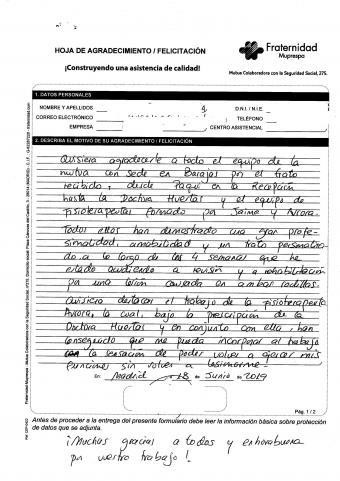 HOJA DE AGRADECIMIENTO / FELICITACIÓN
¡Construyendo una asistencia de calidad!
Fraternidad
Muprespa
Mutua Colaboradora con la Seguridad Social, 275.
1. DATOS PERSONALES
NOMBRE Y APELLIDOS
D.N.I. / N.I.E.
CORREO ELECTRÓNICO
TELÉFONO
EMPRESA
CENTRO ASISTENCIAL
2. DESCRIBA EL MOTIVO DE SU AGRADECIMIENTO / FELICITACIÓN
Quisiera agradecerle a todo el equipo de la
mutua con sede en Barajas por el trato
recibido, desde Paqui en la Recepción
hasta la Doctora Huertas y el equipo de
fisioterapeutas formado por Jaime y Aurora.
Todos ellos han demostrado una gran profe-
sionalidad, amabilidad y un trato personaliza-
do a lo largo de las 4 semanas que he
estado acudiendo a revisión y a rehabilitación
por una lesión causada en ambas rodillas.
Quisiera destacar el trabajo de la fisioterapeuta
Aurora, la cual, bajo la prescripción de la
Doctora Huertas y en conjunto con ella, han
conseguido que me pueda incorporar al trabajo
con la sensación de poder volver a ejercer mis
funciones sin volver a lesionarme.
En Madrid 18 de Junio de 2019
Pág. 1 / 2
Antes de proceder a la entrega del presente formulario debe leer la información básica sobre protección
de datos que se adjunta.
¡Muchas gracias a todos y enhorabuena
por vuestro trabajo!